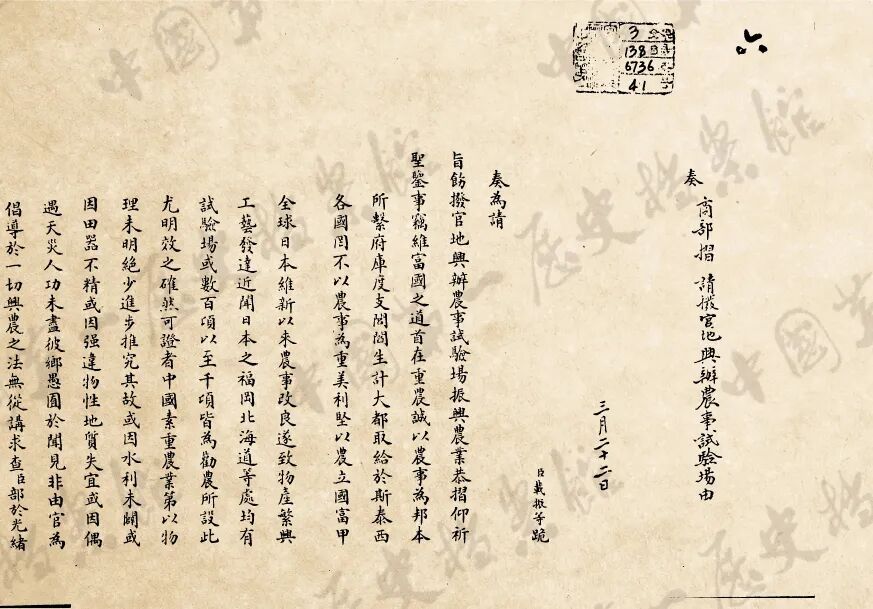 六
3
138
6736
41
奏
商部摺 請撥官地興辦農事試驗場由
三月二十二日
臣載振等跪
奏為請
旨飭撥官地興辦農事試驗場振興農業恭摺仰祈
聖鑒事竊維富國之道首在重農誠以農事為邦本
所繫府庫度支閭閻生計大都取給於斯泰西
各國罔不以農事為重美利堅以農立國富甲
全球日本維新以來農事改良遂致物產繁興
工藝發達近聞日本之福岡北海道等處均有
試驗場或數百項以至千項皆為勸農所設此
尤明效之確然可證者中國素重農業第以物
理未明絕少進步推究其故或因水利未闢或
因田器不精或因强違物性地質失宜或因偶
遇天災人功未盡彼鄉愚囿於聞見非由官為
倡導於一切興農之法無從講求查臣部於光緒
中國第一歷史檔案館